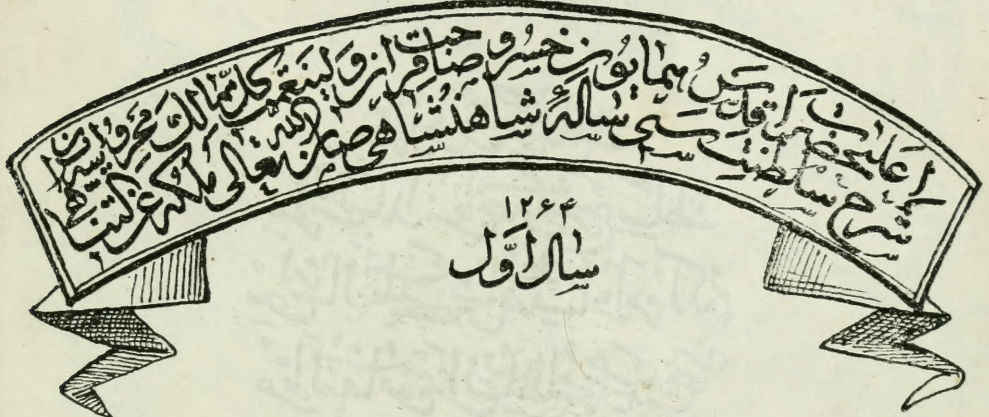 اعلیحضرت اقدس همایون خسرو صاحبقران ولینعمت کل ممالک محروسه ایران
شرح سلطنت سی سالهٔ شاهنشاهی صان الله تعالی ملکه عن التناهی
۱۲۶۴
سال اوّل